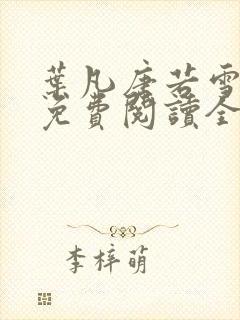 葉凡唐若雪
免費閱讀全
李梓萌